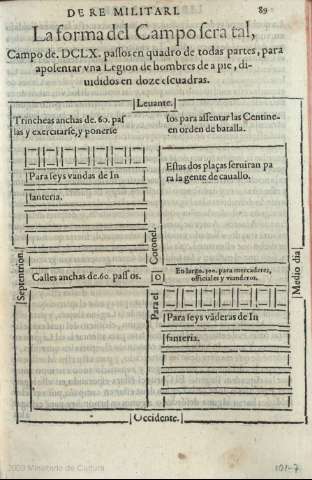 DE RE MILITARI. 89
La forma del Campo sera tal,
Campo de. DCLX. passos en quadro de todas partes, para
aposentar vna Legion de hombres de a pie, di-
uididos en doze escuadras.
Leuante.
Trincheas anchas de. 60. pas
las y exercitarse, y ponerse
sos para assentar las Centine-
en orden de batalla.
Para seys vandas de In
fanteria.
Estas dos plaças seruiran pa
ra la gente de cauallo.
Septentrion.
Para el Coronel.
Medio dia
Calles anchas de. 60. passos.
En largo. 300. para mercaderes,
officiales y vianderos.
Para seys vãderas de In
fanteria.
Occidente.
2009 Ministerio de Cultura
101-7